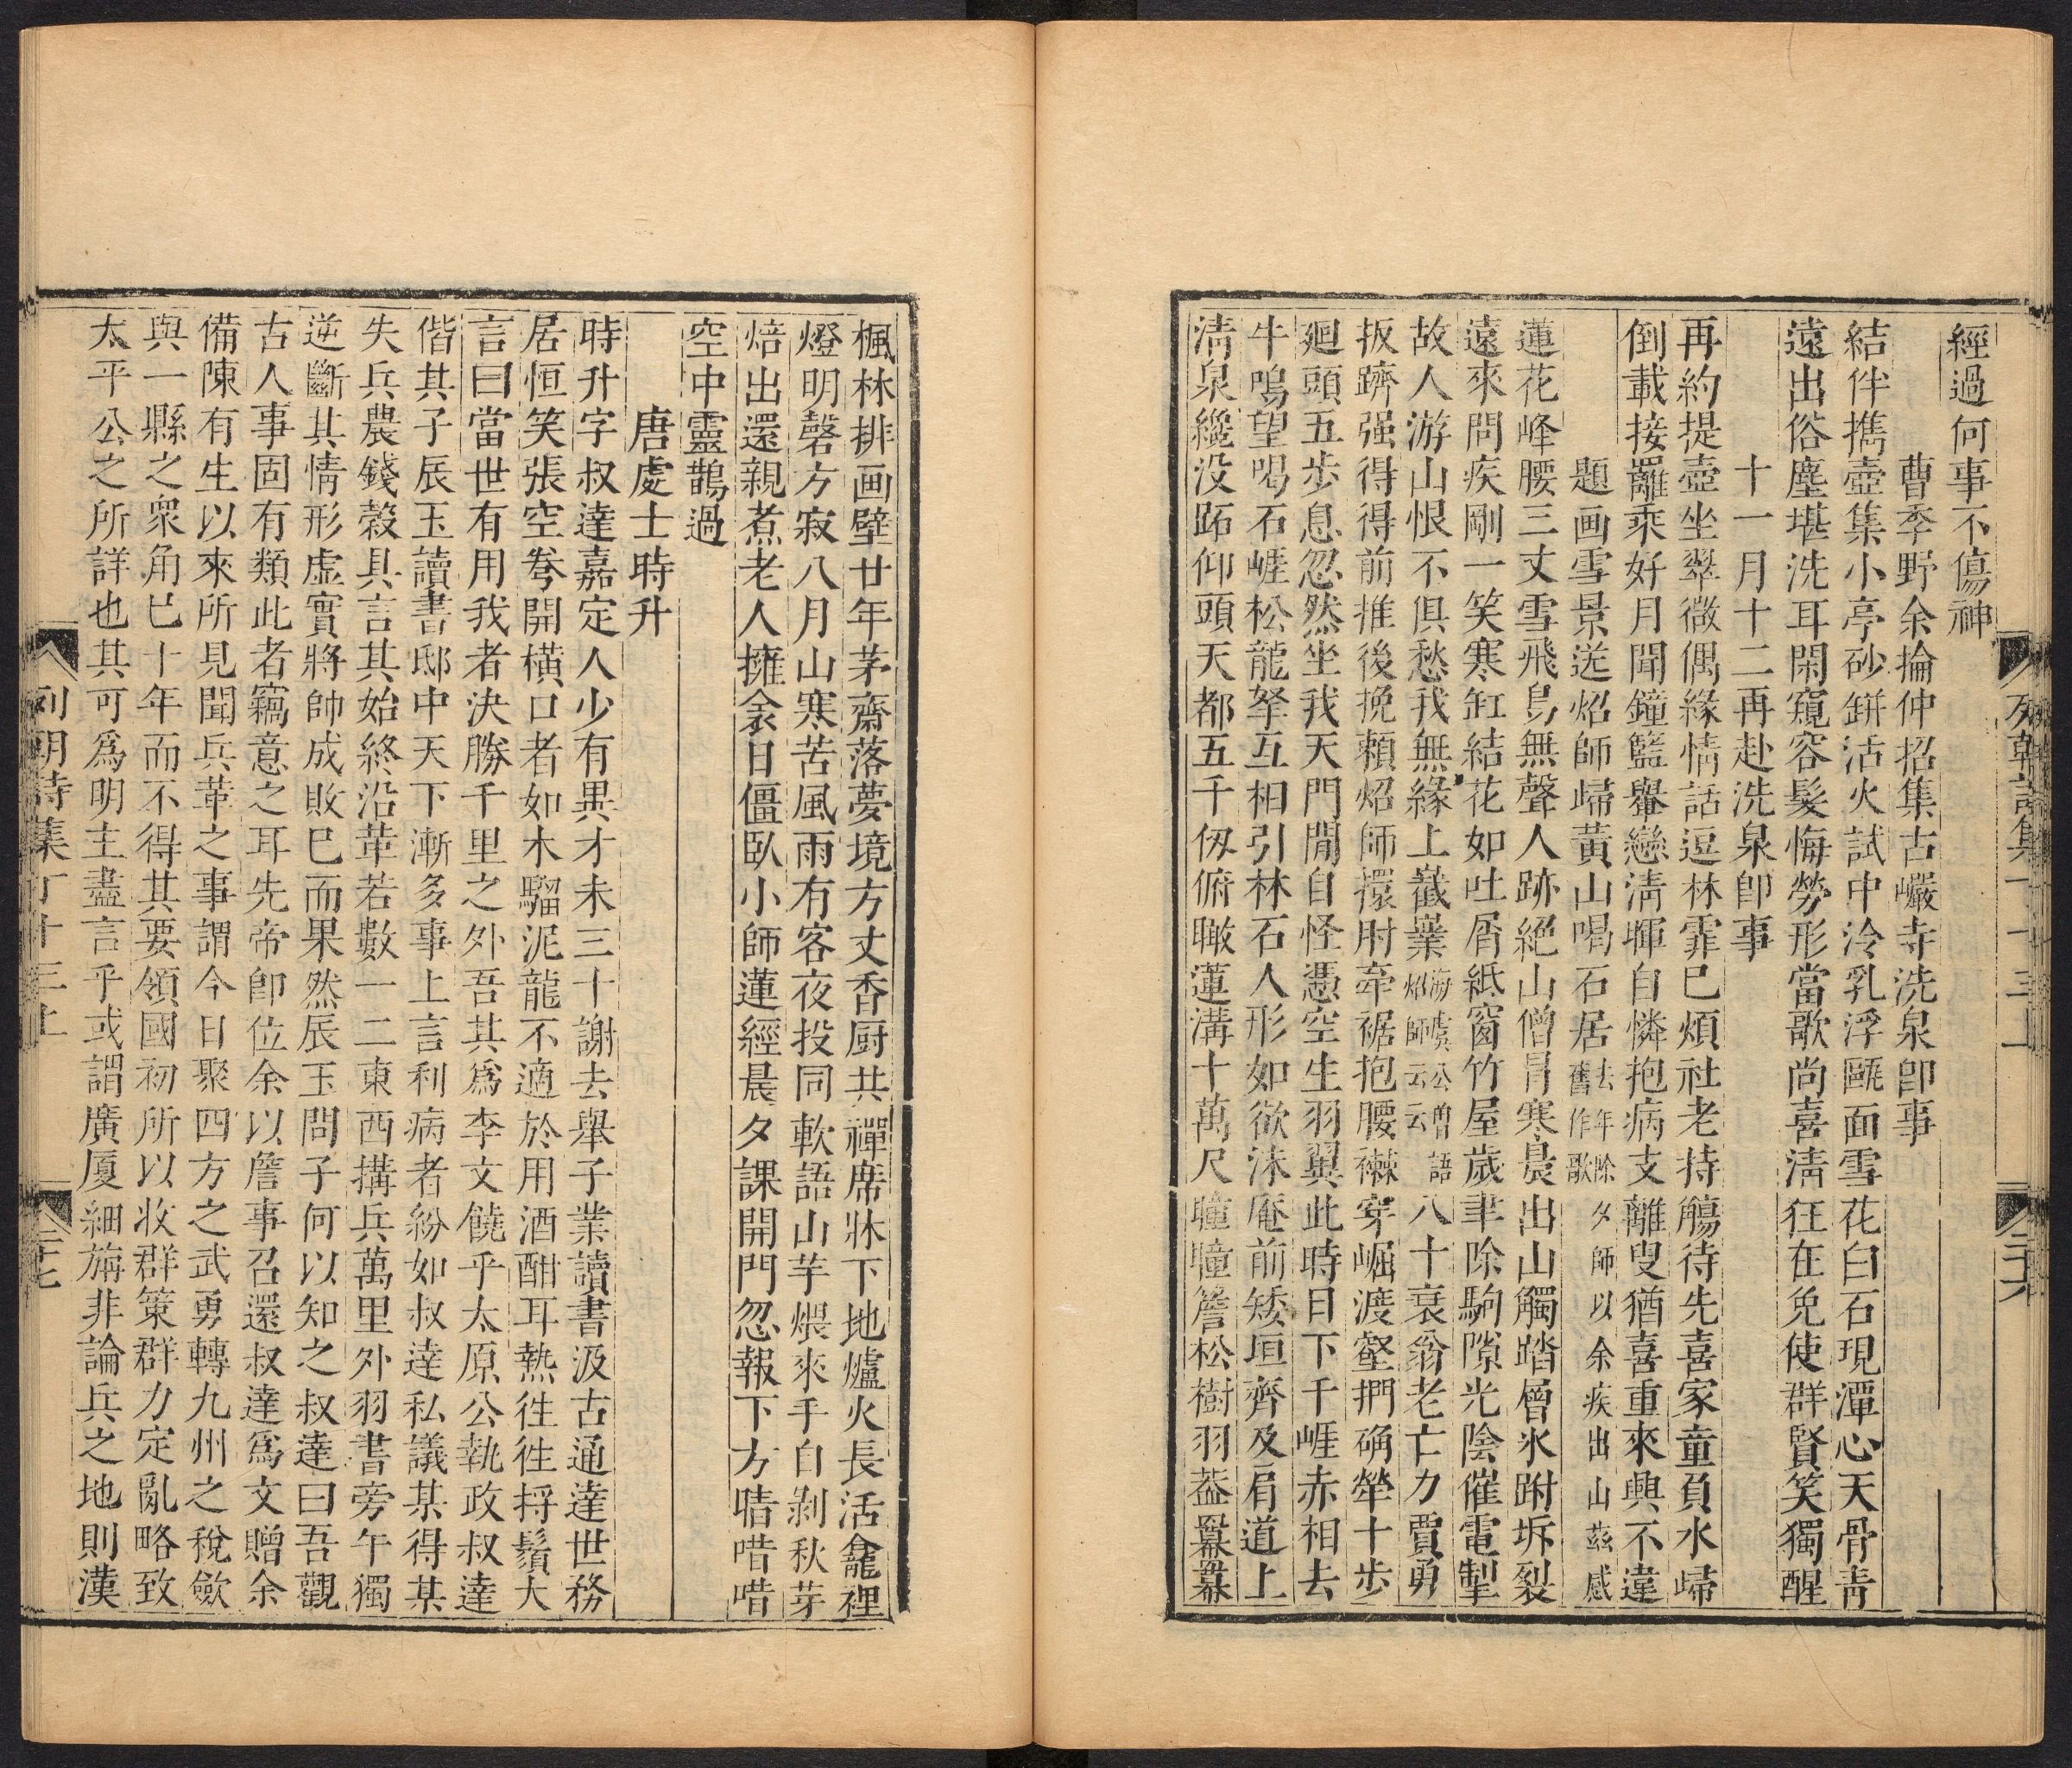 經過何事不傷神
曹季野余掄仲招集古巖寺洗泉卽事
結伴攜壺集小亭砂缾活火試中泠乳浮甌面雪花白石現潭心天骨靑
遠出俗塵堪洗耳閑窺容髮悔勞形當歌尚喜淸狂在免使群賢笑獨醒
十一月十二再赴洗泉卽事
再約提壺坐翠微偶緣情話逗林霏已煩社老持觴待先喜家童負水歸
倒載接䍦乘好月聞鐘籃轝戀淸暉自憐抱病支離叟猶喜重來興不違
題画雪景送炤師歸黃山喝石居去年除夕師以余疾出山茲感
舊作歌
蓮花峰腰三丈雪飛鳥無聲人跡絕山僧冐寒晨出山觸踏層氷跗坼裂
遠來問疾剛一笑寒缸結花如吐屑紙窗竹屋歲聿除駒隙光陰催電掣
故人游山恨不俱愁我無緣上巀嶪海虞公曾語
炤師云云
八十衰翁老亡力賈勇
扳躋强得得前推後挽賴炤師擐肘牽裾抱腰襋穿崛渡壑捫确犖十步
廻頭五步息忽然坐我天門閒自怪憑空生羽翼此時日下千崕赤相去
牛鳴望喝石崕松龍拏互相引林石人形如欲沫庵前矮垣齊及肩道上
淸泉纔没跖仰頭天都五千仭俯瞰蓮溝十萬尺曈曈簷松樹羽葢羃羃
列朝詩集丁十三上
三十六
楓林排画壁廿年茅齋落夢境方丈香厨共禪席牀下地爐火長活龕裡
燈明磬方寂八月山寒苦風雨有客夜投同軟語山芋煨來手自剝秋芽
焙出還親煮老人擁衾日僵臥小師蓮經晨夕課開門忽報下方晴唶唶
空中靈鵲過
唐處士時升
時升字叔達嘉定人少有異才未三十謝去舉子業讀書汲古通達世務
居恒笑張空弮開橫口者如木騮泥龍不適於用酒酣耳熱徃徃捋鬚大
言曰當世有用我者決勝千里之外吾其爲李文饒乎太原公執政叔達
偕其子辰玉讀書邸中天下漸多事上言利病者紛如叔達私議某得某
失兵農錢穀具言其始終沿革若數一二東西搆兵萬里外羽書旁午獨
逆斷其情形虛實將帥成敗已而果然辰玉問子何以知之叔達曰吾觀
古人事固有類此者竊意之耳先帝卽位余以詹事召還叔達爲文贈余
備陳有生以來所見聞兵革之事謂今日聚四方之武勇轉九州之稅歛
與一縣之衆角已十年而不得其要領國初所以收群策群力定亂略致
太平公之所詳也其可爲明主盡言乎或謂廣厦細旃非論兵之地則漢
列朝詩集丁十三上
三十七